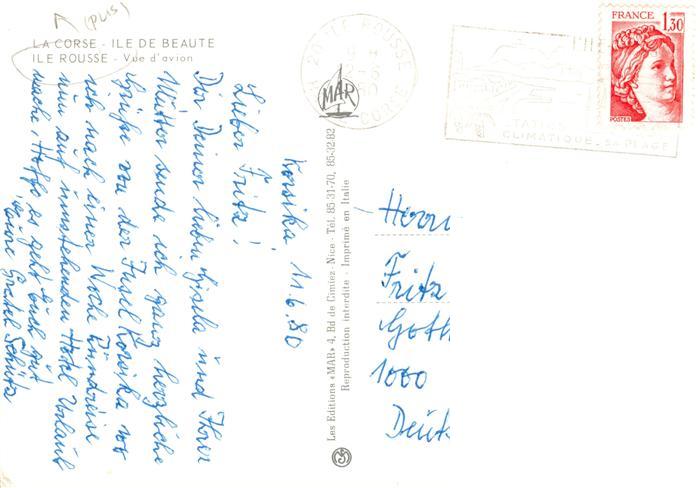 (PLIS)
LA CORSE - ILE DE BEAUTE
ILE ROUSSE - Vue d'avion
MAR
20 ILE ROUSSE
FRANCE
1,30
POSTES
CLIMATIQUE - SA PLAGE
Korsika 11.6.80
Lieber Fritz!
Dir Deiner lieben Gisela und Ihrer
Mutter sende ich ganz herzliche
Grüße von der Insel Korsika wo
ich nach einer Woche Rundreise
nun auf umstehenden Hotel Urlaub
mache. Hoffe es geht Euch gut
Eure Gretel Schütz
Les Editions «MAR» 4, Bd de Cimiez - Nice - Tél. 85-31-70, 85-32-82
Reproduction interdite - Imprimé en Italie
Herrn
Fritz
Goth
1000
Deut